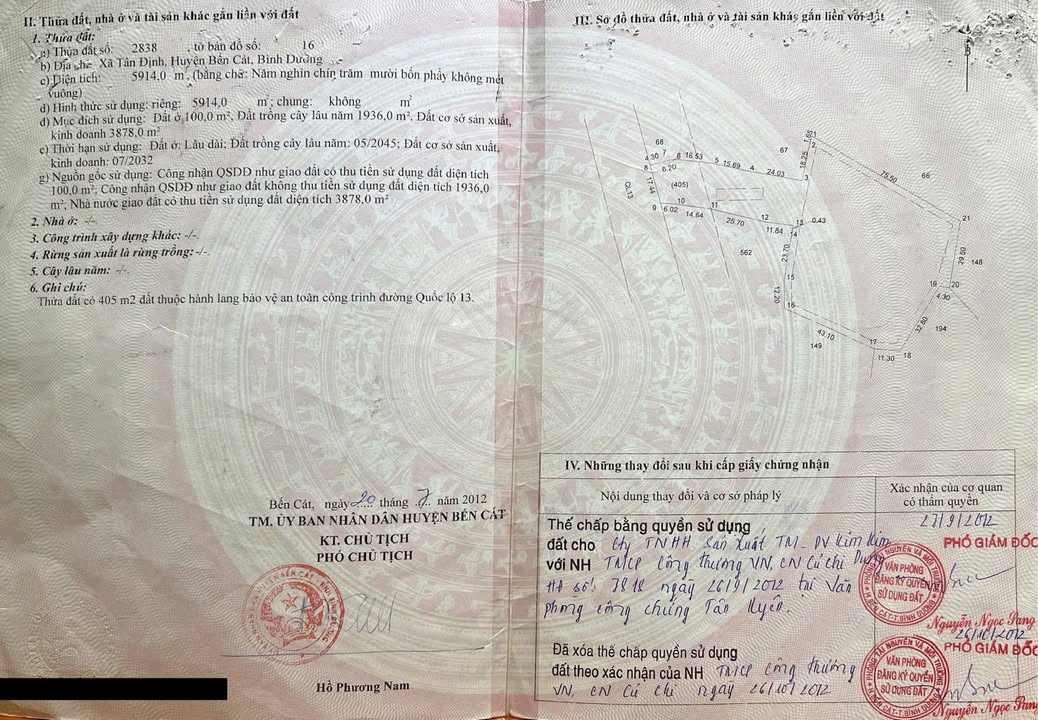 II. Thửa đất, nhà ở và tài sản khác gắn liền với đất
1. Thửa đất:
a) Thửa đất số: 2838 , tờ bản đồ số: 16
b) Địa chỉ: Xã Tân Định, Huyện Bến Cát, Bình Dương
c) Diện tích: 5914,0 m², (bằng chữ: Năm nghìn chín trăm mười bốn phẩy không mét
vuông)
d) Hình thức sử dụng: riêng: 5914,0 m²; chung: không m²
đ) Mục đích sử dụng: Đất ở 100,0 m², Đất trồng cây lâu năm 1936,0 m², Đất cơ sở sản xuất,
kinh doanh 3878,0 m²
e) Thời hạn sử dụng: Đất ở: Lâu dài; Đất trồng cây lâu năm: 05/2045; Đất cơ sở sản xuất,
kinh doanh: 07/2032
g) Nguồn gốc sử dụng: Công nhận QSDĐ như giao đất có thu tiền sử dụng đất diện tích
100,0 m²; Công nhận QSDĐ như giao đất không thu tiền sử dụng đất diện tích 1936,0
m²; Nhà nước giao đất có thu tiền sử dụng đất diện tích 3878,0 m²
2. Nhà ở: -/-
3. Công trình xây dựng khác: -/-.
4. Rừng sản xuất là rừng trồng: -/-
5. Cây lâu năm: -/-
6. Ghi chú:
Thửa đất có 405 m2 đất thuộc hành lang bảo vệ an toàn công trình đường Quốc lộ 13.
Bến Cát, ngày 20 tháng 7 năm 2012
TM. ỦY BAN NHÂN DÂN HUYỆN BẾN CÁT
KT. CHỦ TỊCH
PHÓ CHỦ TỊCH
Hồ Phương Nam
III. Sơ đồ thửa đất, nhà ở và tài sản khác gắn liền với đất
B
1.65
2
68
67
18.25
66
4.30 7 6 16.53 5 15.69 4 24.03 3
8 6.20
75.50
QL13
17.44
(405)
21
9 6.02 10 14.64 11 25.70 12 11.84 13 0.43
14
562
23.70
29.50
148
15
19 20
12.20
4.30
16
32.80
194
43.10
17
149
11.30 18
IV. Những thay đổi sau khi cấp giấy chứng nhận
Nội dung thay đổi và cơ sở pháp lý
Xác nhận của cơ quan
có thẩm quyền
Thế chấp bằng quyền sử dụng
đất cho Cty TNHH Sản Xuất TM-DV Kim Kim
với NH TMCP Công thương VN, CN Củ Chi
HĐ số: ngày 26/9/2012 tại Văn
phòng công chứng Tân Uyên.
27/9/2012
PHÓ GIÁM ĐỐC
VĂN PHÒNG
ĐĂNG KÝ QUYỀN
SỬ DỤNG ĐẤT
Nguyễn Ngọc Sang
Đã xóa thế chấp quyền sử dụng
đất theo xác nhận của NH TMCP Công thương
VN, CN Củ Chi ngày 26/10/2012
26/10/2012
PHÓ GIÁM ĐỐC
VĂN PHÒNG
ĐĂNG KÝ QUYỀN
SỬ DỤNG ĐẤT
Nguyễn Ngọc Sang